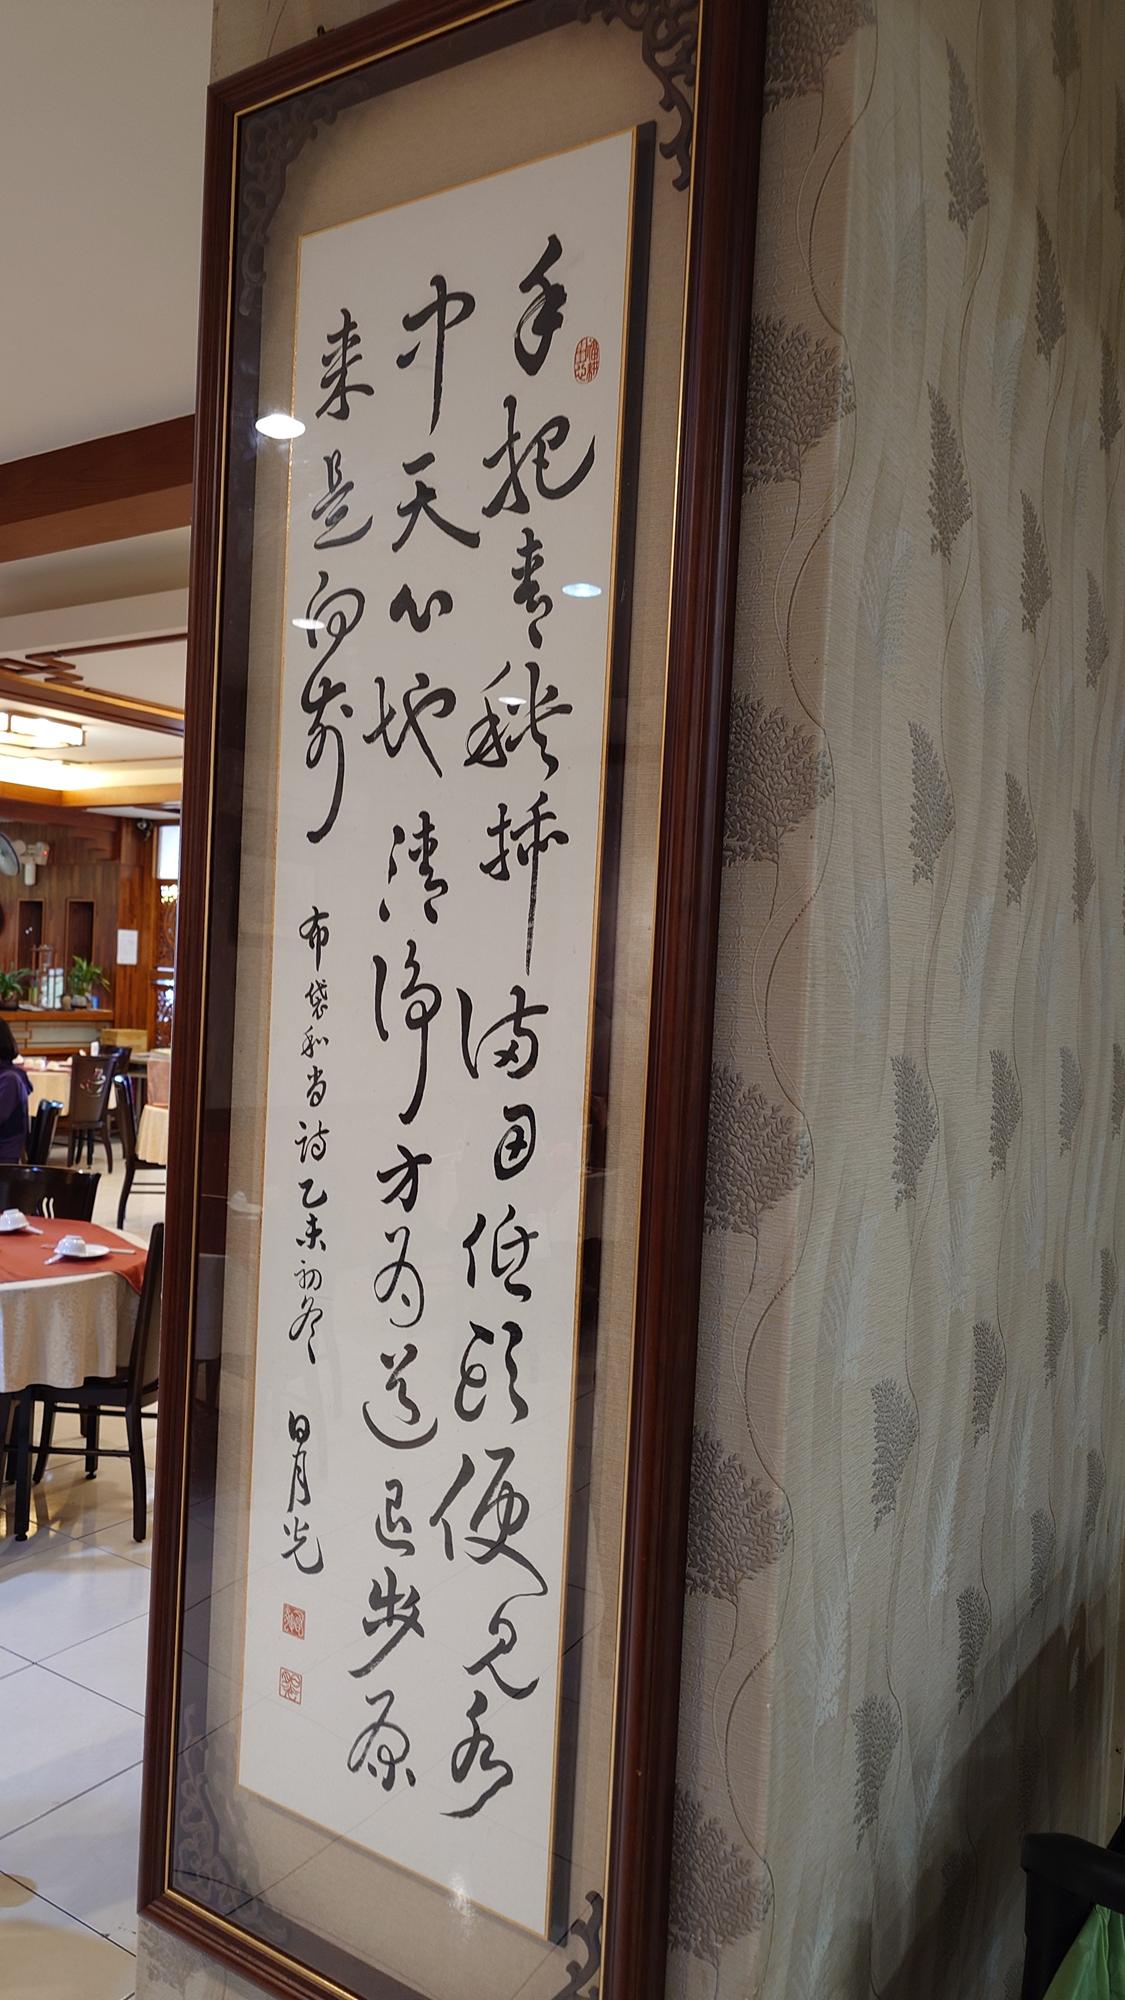 手把青秧插滿田低頭便見水
中天心地清淨方為道退步原
來是向前
布袋和尚詩乙未初冬 日月光